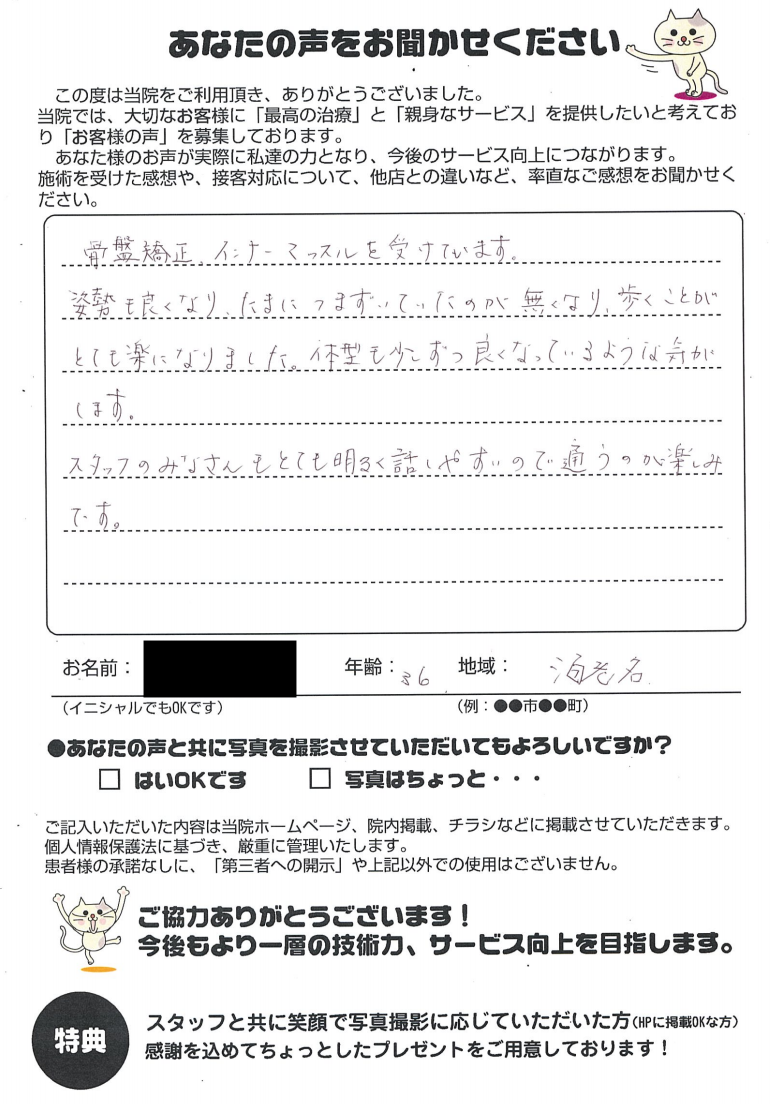 あなたの声をお聞かせください
この度は当院をご利用頂き、ありがとうございました。
当院では、大切なお客様に「最高の治療」と「親身なサービス」を提供したいと考えてお
り「お客様の声」を募集しております。
あなた様のお声が実際に私達の力となり、今後のサービス向上につながります。
施術を受けた感想や、接客対応について、他店との違いなど、率直なご感想をお聞かせく
ださい。
骨盤矯正、インナーマッスルを受けています。
姿勢も良くなり、たまにつまずいていたのが無くなり、歩くことが
とても楽になりました。体型も少しずつ良くなっているような気が
します。
スタッフのみなさんもとても明るく話しやすいので通うのが楽しみ
です。
お名前： 年齢：36 地域： 海老名
（イニシャルでもOKです） （例：●●市●●町）
●あなたの声と共に写真を撮影させていただいてもよろしいですか？
□ はいOKです □ 写真はちょっと・・・
ご記入いただいた内容は当院ホームページ、院内掲載、チラシなどに掲載させていただきます。
個人情報保護法に基づき、厳重に管理いたします。
患者様の承諾なしに、「第三者への開示」や上記以外での使用はございません。
ご協力ありがとうございます！
今後もより一層の技術力、サービス向上を目指します。
特典
スタッフと共に笑顔で写真撮影に応じていただいた方(HPに掲載OKな方)
感謝を込めてちょっとしたプレゼントをご用意しております！